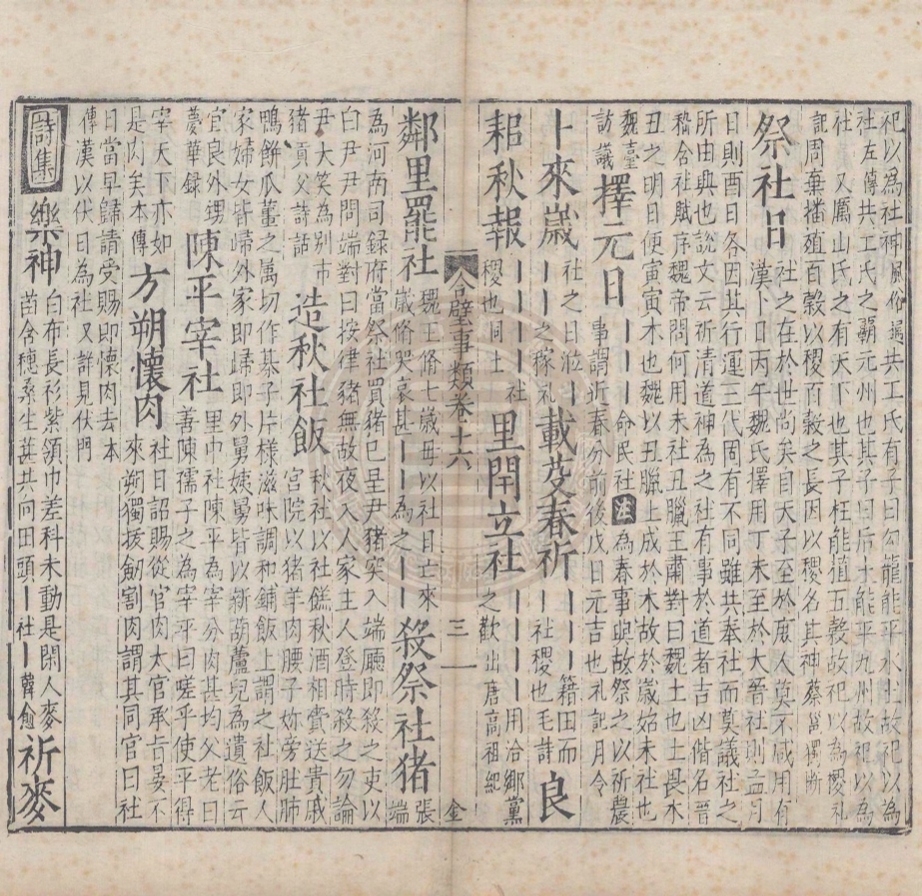 祀以為社神 風俗通共工氏有子曰勾龍能平水土故祀以為
社左傳共工氏之覇九州也其子曰后土能平九州故祀以為
社 又厲山氏之有天下也其子柱能植五穀故祀以為稷礼
記周棄播殖百穀以稷百穀之長因以稷名其神蔡邕獨断
祭社日 社之在於世尚矣自天子至於庶人莫不咸用有
漢卜日丙午魏氏擇用丁未至於大晉社則孟月
日則酉日各因其行運三代固有不同雖共奉社而莫議社之
所由興也說文云祈清道神為之社有事於道者吉凶偕名晉
嵇含社賦序魏帝問何用未社丑臘王肅對曰魏土也土畏木
丑之明日便寅寅木也魏以丑臘土成於木故於歲始未社也
魏臺訪議 擇元日 丨丨丨命民社注為春事與故祭之以祈農
事謂近春分前後戊日元吉也礼記月令
卜來歲 社之日涖丨丨丨之稼礼 載芟春祈 丨丨丨丨籍田而丨社稷也毛詩 良
耜秋報 丨丨丨丨社稷也同上 里閈立社 丨丨丨丨用洽鄉黨之歡出唐高祖紀
合璧事類卷十六 三 金
鄰里罷社 魏王脩七歲母以社日亡來歲脩哭哀甚丨丨為之丨丨 殺祭社猪 張端
為河南司録府當祭社買猪已呈尹猪突入端廳即殺之吏以
白尹尹問端對曰按律猪無故夜入人家主人登時殺之勿論
尹大笑為别市猪貢父詩話 造秋社飯 秋社以社餻秋酒相賚送貴戚宮院以猪羊肉腰子妳旁肚肺
鴨餅瓜薑之属切作棊子片様滋味調和鋪飯上謂之社飯人
家婦女皆歸外家即歸即外舅姨舅皆以新葫蘆兒為遺俗云
宜良外甥夢華録 陳平宰社 里中社陳平為宰分肉甚均父老曰善陳孺子之為宰平曰嗟乎使平得
宰天下亦如是肉矣本傳 方朔懷肉 社日詔賜從官肉太官承㫖晏不來朔獨拔劒割肉謂其同官曰社
日當早歸請受賜即懷肉去本
傳漢以伏日為社又詳見伏門
詩集 樂神 白布長衫紫領巾差科未動是閑人麥苗含穗桑生葚共向田頭丨社丨韓愈 祈麥